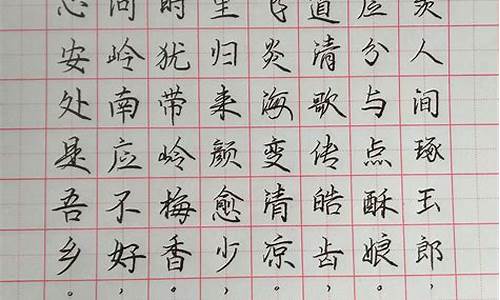 羡人间琢玉郎，
应分与点酥娘。
道清歌传皓齿，
飞炎海变清凉。
里归来颜愈少，
时犹带岭梅香。
问岭南应不好，
心安处是吾乡。